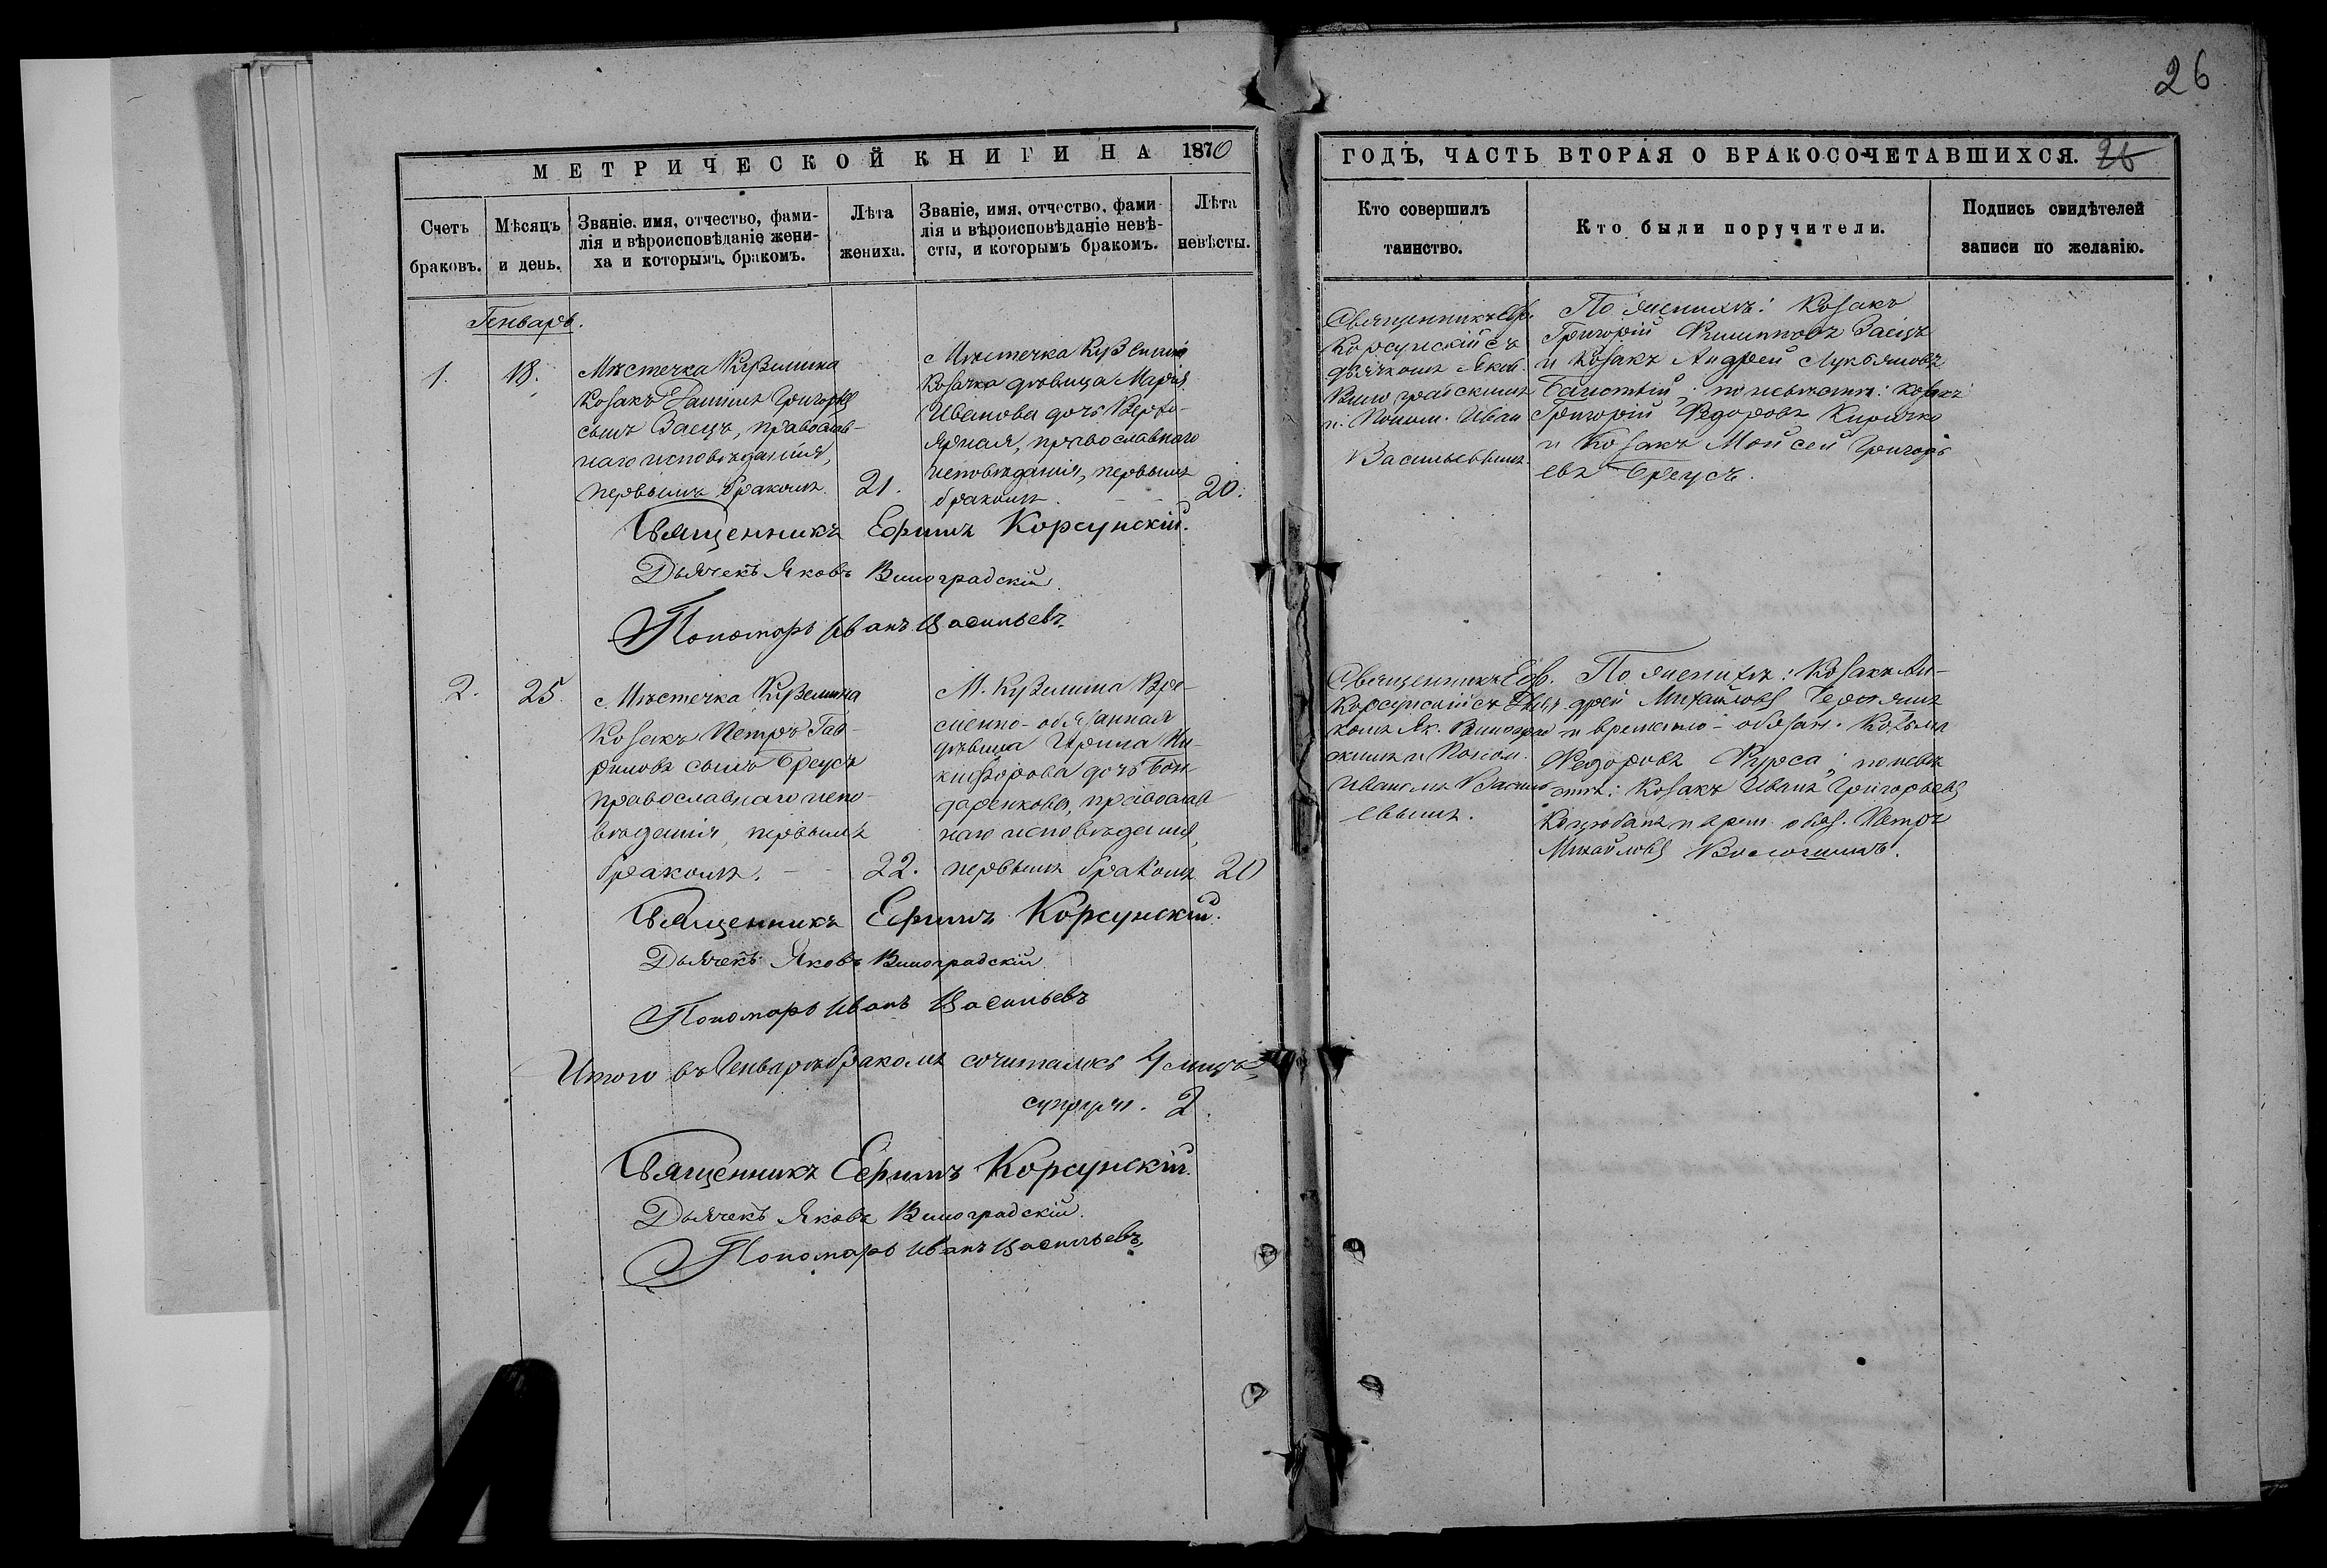 26
МЕТРИЧЕСКОЙ КНИГИ НА 1870
Счетъ браковъ.
Мѣсяцъ и день.
Званіе, имя, отчество, фами-
лія и вѣроисповѣданіе жени-
ха и которымъ бракомъ.
Лѣта жениха.
Званіе, имя, отчество, фами-
лія и вѣроисповѣданіе невѣ-
сты, и которымъ бракомъ.
Лѣта невѣсты.
Генварь.
1.
18.
Мѣстечка
Козакъ Даніилъ Григорьев
сынъ Заецъ, православ-
наго исповѣданія,
первымъ бракомъ.
21.
Мѣстечка
Козачка дѣвица Марія
Иванова дочь
православнаго
исповѣданія, первымъ
бракомъ.
20.
Священникъ Ефимъ Корсунскій.
Дьячекъ Яковъ Виноградскій
Пономарь Иванъ Васильевъ
2.
25.
Мѣстечка
Козакъ Петръ Гав-
риловъ сынъ Бреусъ
православнаго испо-
вѣданія, первымъ
бракомъ.
22.
М. Вре-
менно-обязанная
дѣвица Ирина Ни-
кифорова дочь Бон-
даренкова, православ-
наго исповѣданія,
первымъ бракомъ
20
Священникъ Ефимъ Корсунскій.
Дьячекъ Яковъ Виноградскій
Пономарь Иванъ Васильевъ
Итого въ Генварѣ бракомъ сочетались 4 лица
супруж. 2.
Священникъ Ефимъ Корсунскій.
Дьячекъ Яковъ Виноградскій.
Пономарь Иванъ Васильевъ
ГОДЪ, ЧАСТЬ ВТОРАЯ О БРАКОСОЧЕТАВШИХСЯ. 26
Кто совершилъ
таинство.
Кто были поручители.
Подпись свидѣтелей
записи по желанію.
Священникъ Еф.
Корсунскій съ
дьячкомъ Яков.
Виноградскимъ
и Поном. Иван
Васильевымъ.
По женихѣ: Козакъ
Григорій Филипповъ Заецъ
и Козакъ Андрей Лукьяновъ
по невѣстѣ: козакъ
Григорій Федоровъ Киричко
и Козакъ Мойсей Григорь
евъ Бреусъ.
Священникъ Еф.
Корсунскій съ Дьяч
комъ Як. Виноград
скимъ и Поном.
Иваномъ Василь
евымъ.
По женихѣ: Козакъ Ан-
дрей Михайловъ
и временно-обязан. Козьма
Федоровъ Курса; по невѣ
стѣ: Козакъ Иванъ Григорьевъ
и врем. обяз. Петръ
Михайловъ Волошинъ.